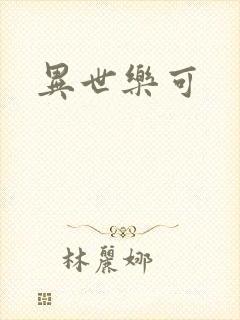 異世樂可
林麗娜